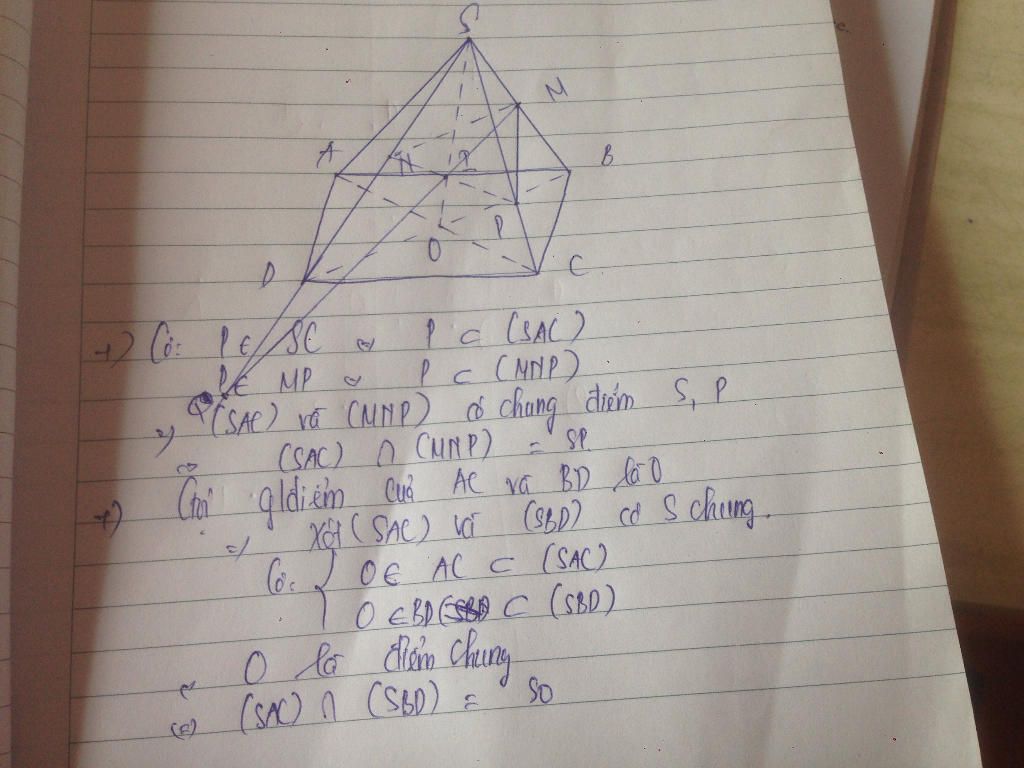 S
M
A
N
I
B
P
O
D
C
+) Có: P ∈ SC ⇒ P ⊂ (SAC)
P ∈ MP ⇒ P ⊂ (MNP)
Q
⇒) (SAC) và (MNP) có chung điểm S, P
⇔ (SAC) ∩ (MNP) = SP.
+) Gọi g/điểm của AC và BD là O
=) Xét (SAC) và (SBD) có S chung.
Có: { O ∈ AC ⊂ (SAC)
O ∈ BD ⊂ (SBD)
O là điểm chung
(SAC) ∩ (SBD) = SO